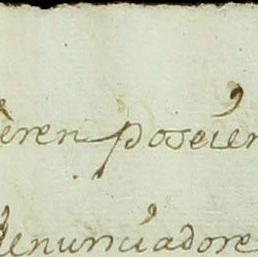 eren poseien
denunciadore